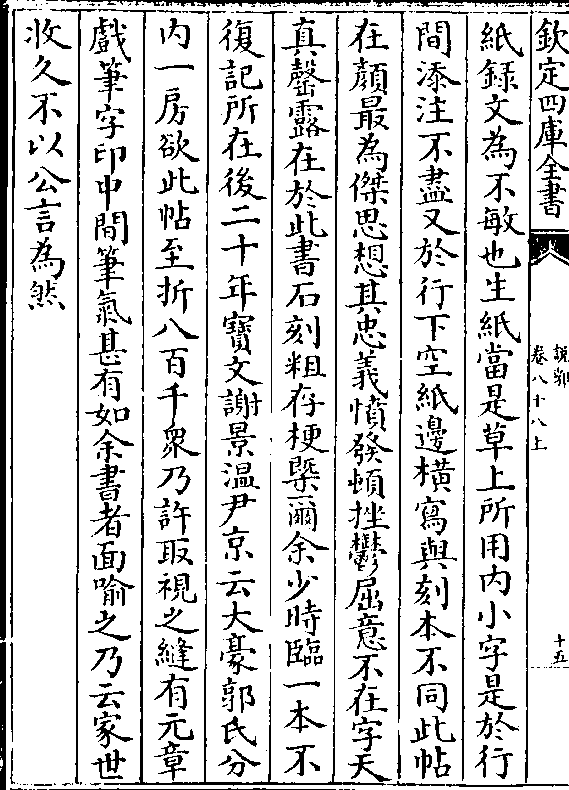 欽定四庫全書
說郛
卷八十八上
十五
紙録文為不敏也生紙當是草上所用内小字是於行
間添注不盡又於行下空紙邊横寫與刻本不同此帖
在顔最為傑思想其忠義憤發頓挫鬱屈意不在字天
真罄露在於此書石刻粗存梗槩爾余少時臨一本不
復記所在後二十年寶文謝景温尹京云大豪郭氏分
内一房欲此帖至折八百千衆乃許取視之縫有元章
戲筆字印中間筆氣甚有如余書者面喻之乃云家世
收久不以公言為然